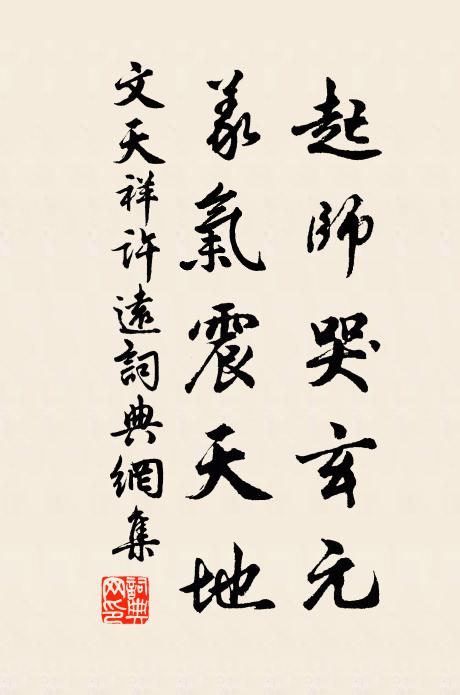 起師哭玄元
義氣震天地
文天祥許遠詞典網集
詞典
网印